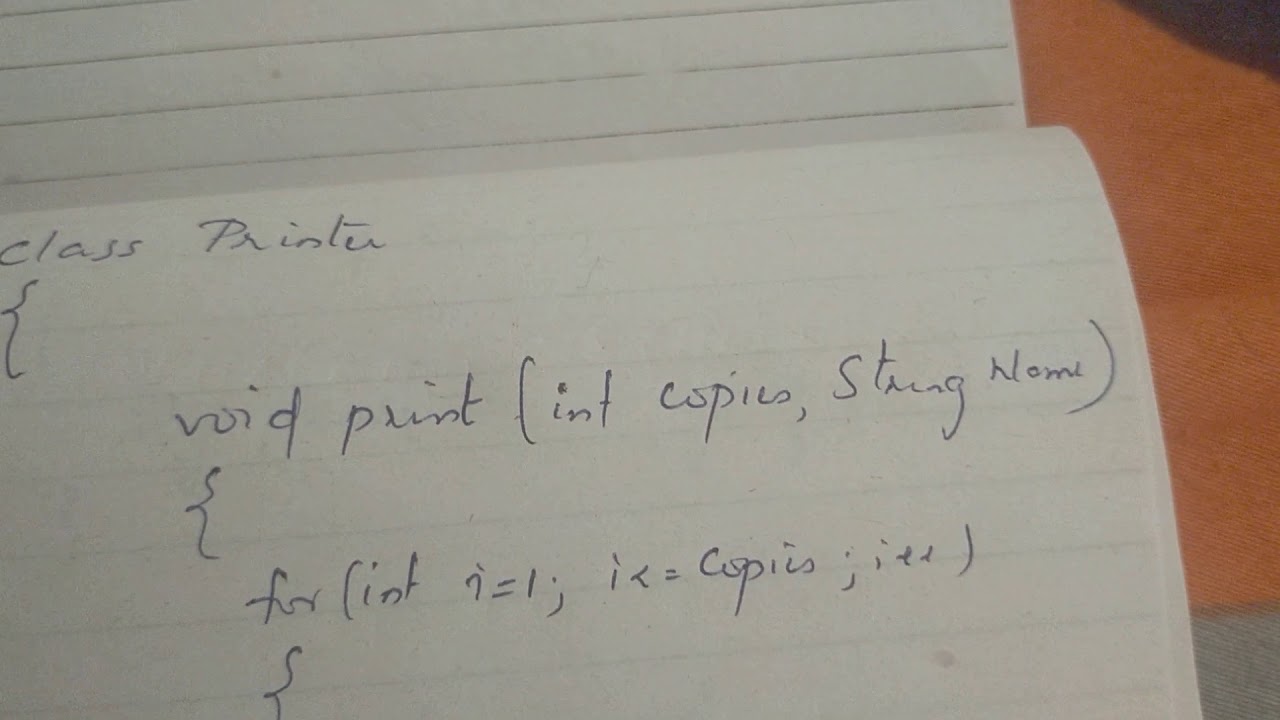 class Printer
{
void print (int copies, String Name)
{
for (int i=1; i<= Copies ; i++)
{